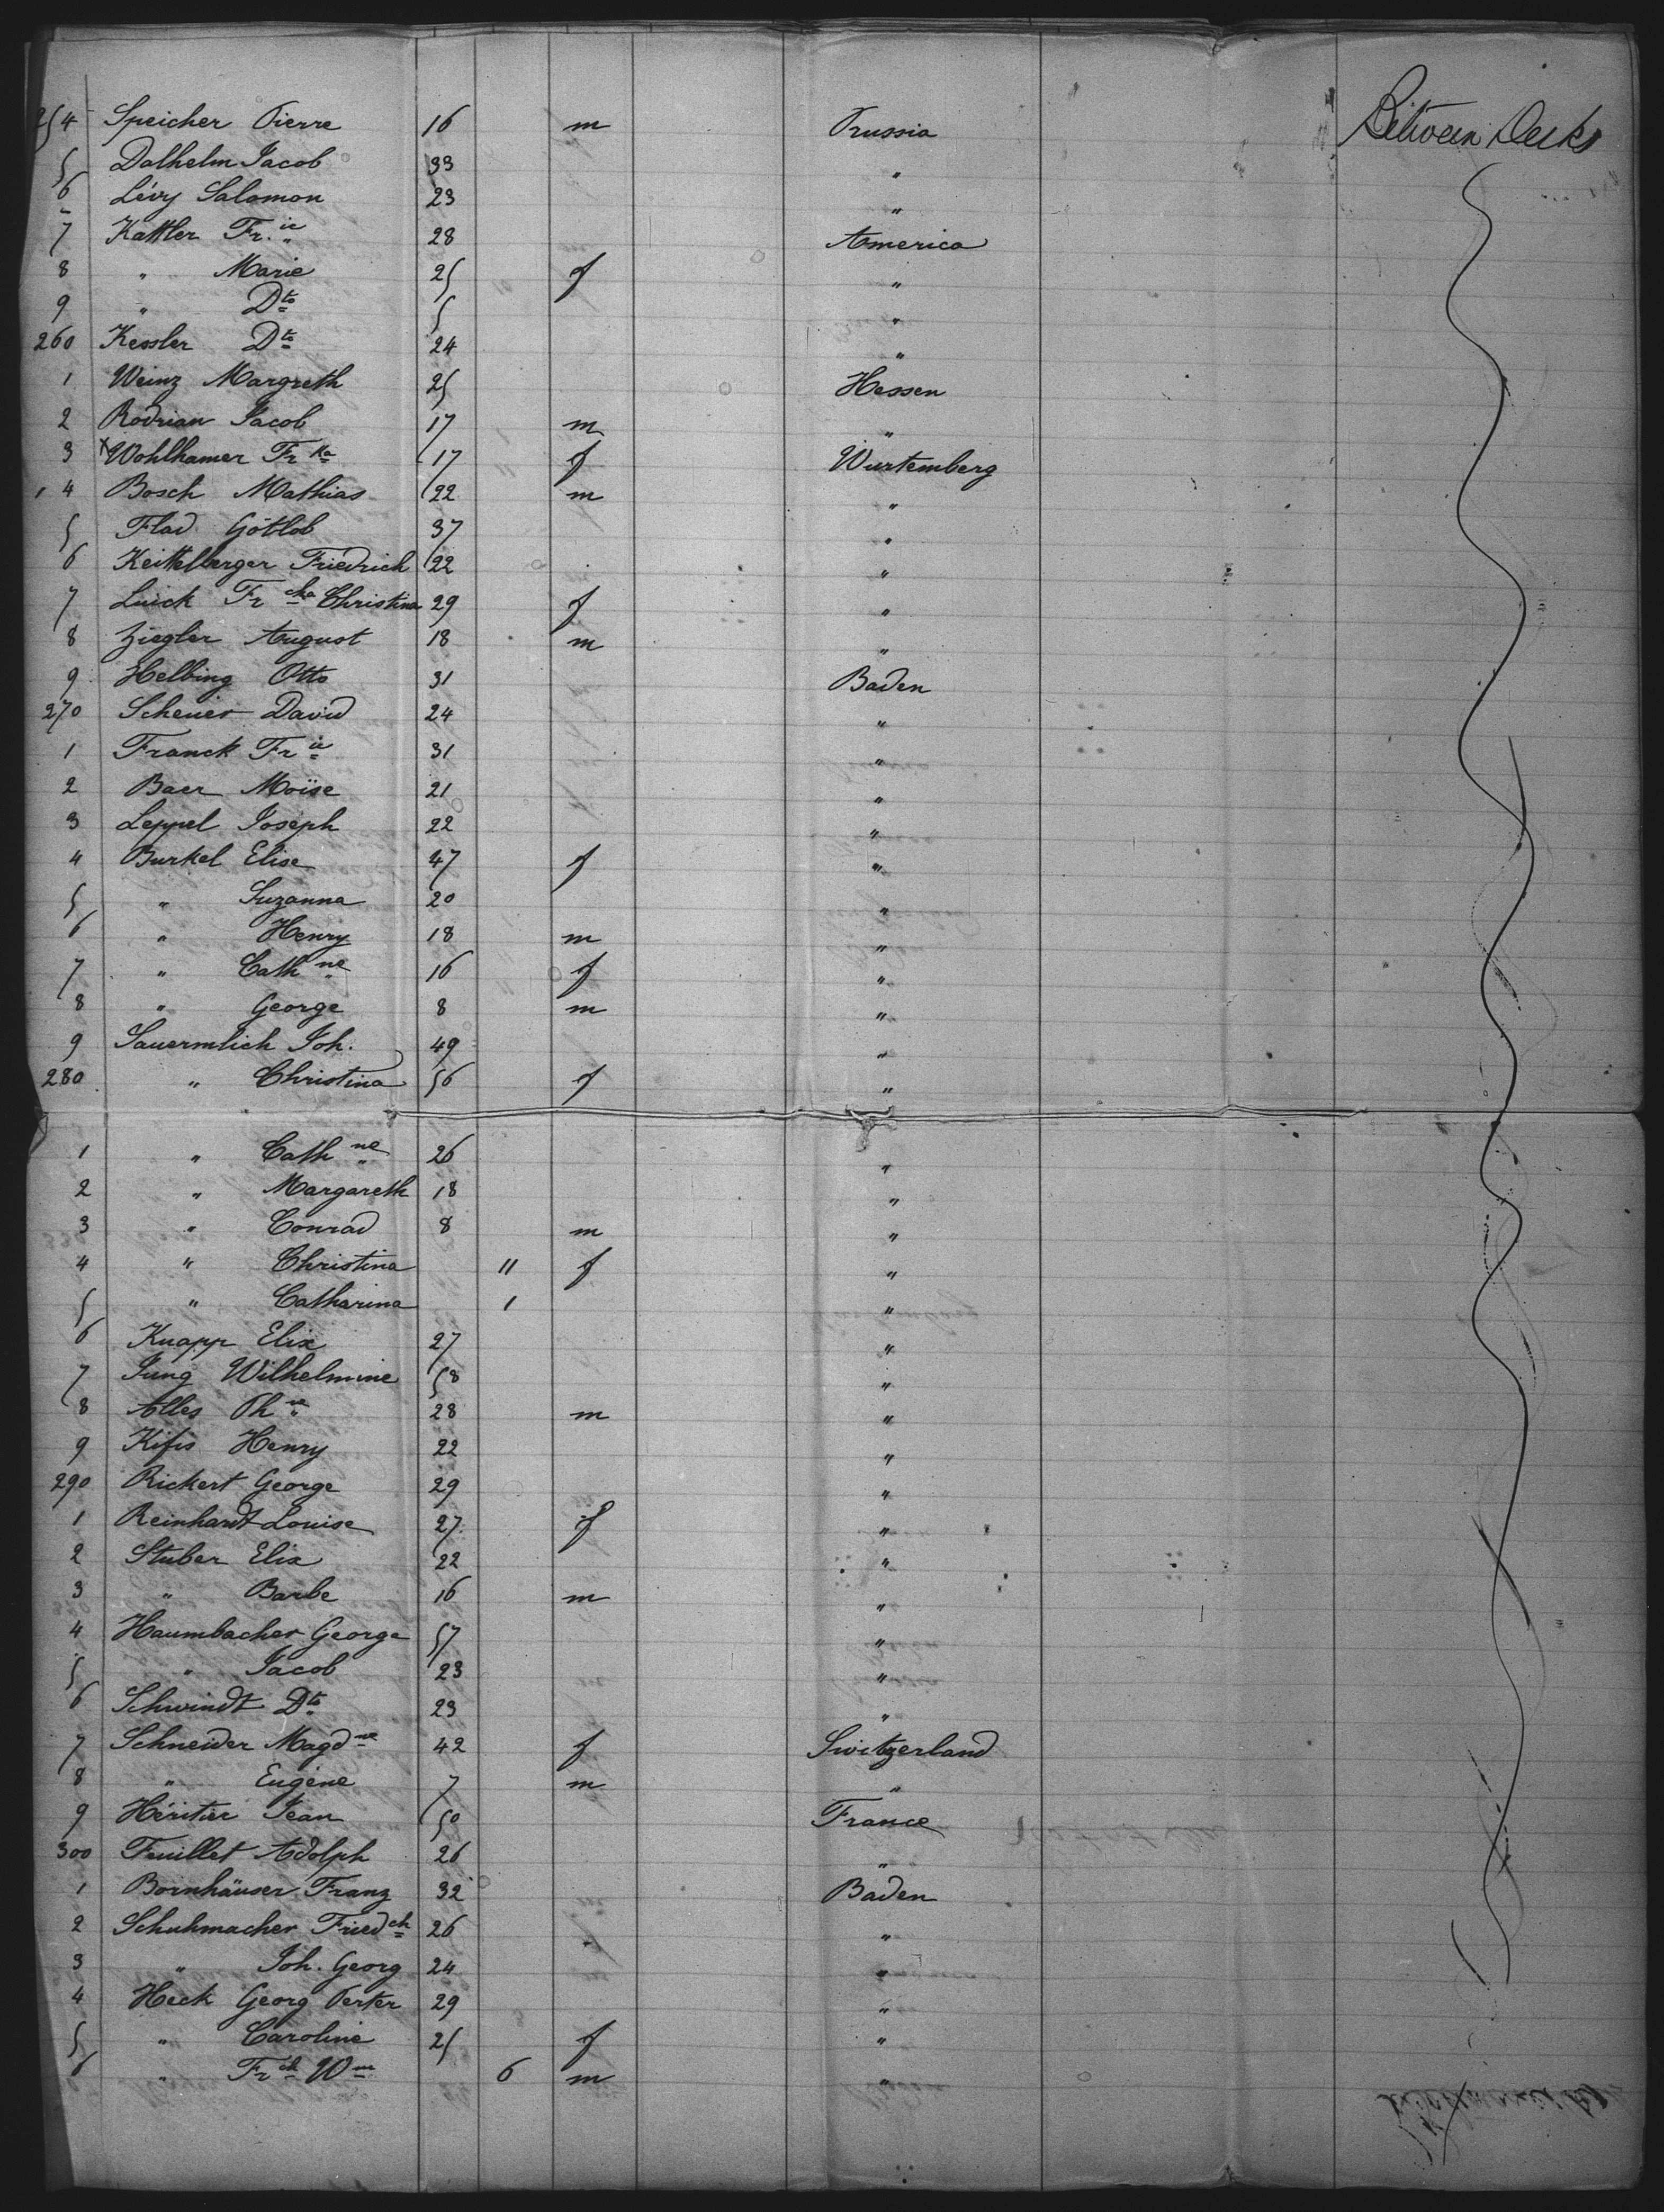 254 Speicher Pierre 16 m Prussia Between Decks
5 Dalhelm Jacob 33 "
6 Lévy Salomon 23 "
7 Kattler Fr. ic 28 America
8 " Marie 25 f "
9 " Dto 5 "
260 Kessler Dto 24 "
1 Weinz Margreth 25 Hessen
2 Rodrian Jacob 17 m "
3 x Wohlhamer Fr ka 17 f Wurtemberg
4 Bosch Mathias 22 m "
5 Flad Gottlob 37 "
6 Keittelberger Friedrich 22 "
7 Luick Fr cka Christina 29 f "
8 Ziegler August 18 m "
9 Helbing Otto 31 Baden
270 Scheuer David 24 "
1 Franck Fr ic 31 "
2 Baer Moïse 21 "
3 Leppel Joseph 22 "
4 Burkel Elise 47 f "
5 " Suzanna 20 "
6 " Henry 18 m "
7 " Cath ne 16 f "
8 " George 8 m "
9 Sauermlich Joh. 49 "
280 " Christina 56 f "
1 " Cath ne 26 "
2 " Margareth 18 "
3 " Conrad 8 m "
4 " Christina 11 f "
5 " Catharina 1 "
6 Knapp Elix 27 "
7 Jung Wilhelmine 58 "
8 Alles Ph 28 m "
9 Kifis Henry 22 "
290 Rickert George 29 "
1 Reinhardt Louise 27 f "
2 Stuber Elix 22 "
3 " Barbe 16 m "
4 Haumbacher George 57 "
5 " Jacob 23 "
6 Schwindt Dto 23 "
7 Schneider Magd ne 42 f Switzerland
8 " Eugène 7 m "
9 Héritier Jean 50 France
300 Feuillet Adolph 26 "
1 Bornhäuser Franz 32 Baden
2 Schuhmacher Fried ch 26 "
3 " Joh. Georg 24 "
4 Heck Georg Perter 29 "
5 " Caroline 25 f "
6 " Fr ch Wm 6 m "